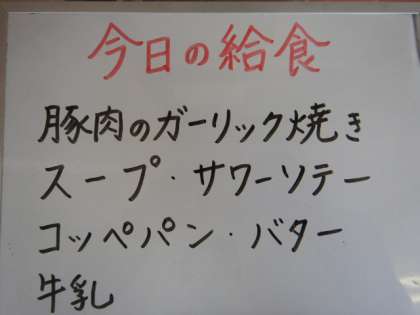 今日の給食
豚肉のガーリック焼き
スープ・サワーソテー
コッペパン・バター
牛乳